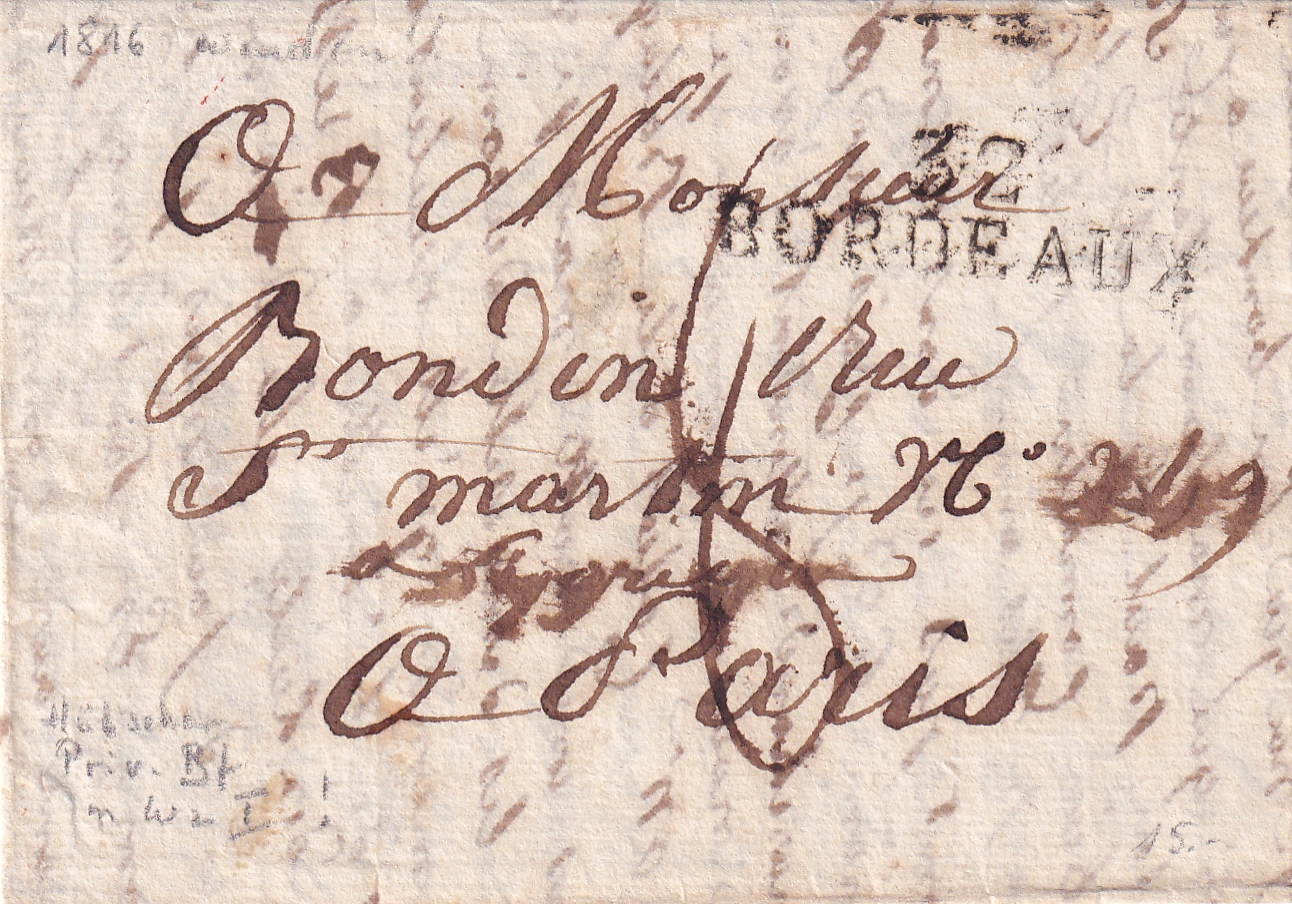 1816
A Monsieur
32
BORDEAUX
Bondin Rue
St martin No 249
A Paris
Hübscher
Priv. Bf
m Wz I !
15.-